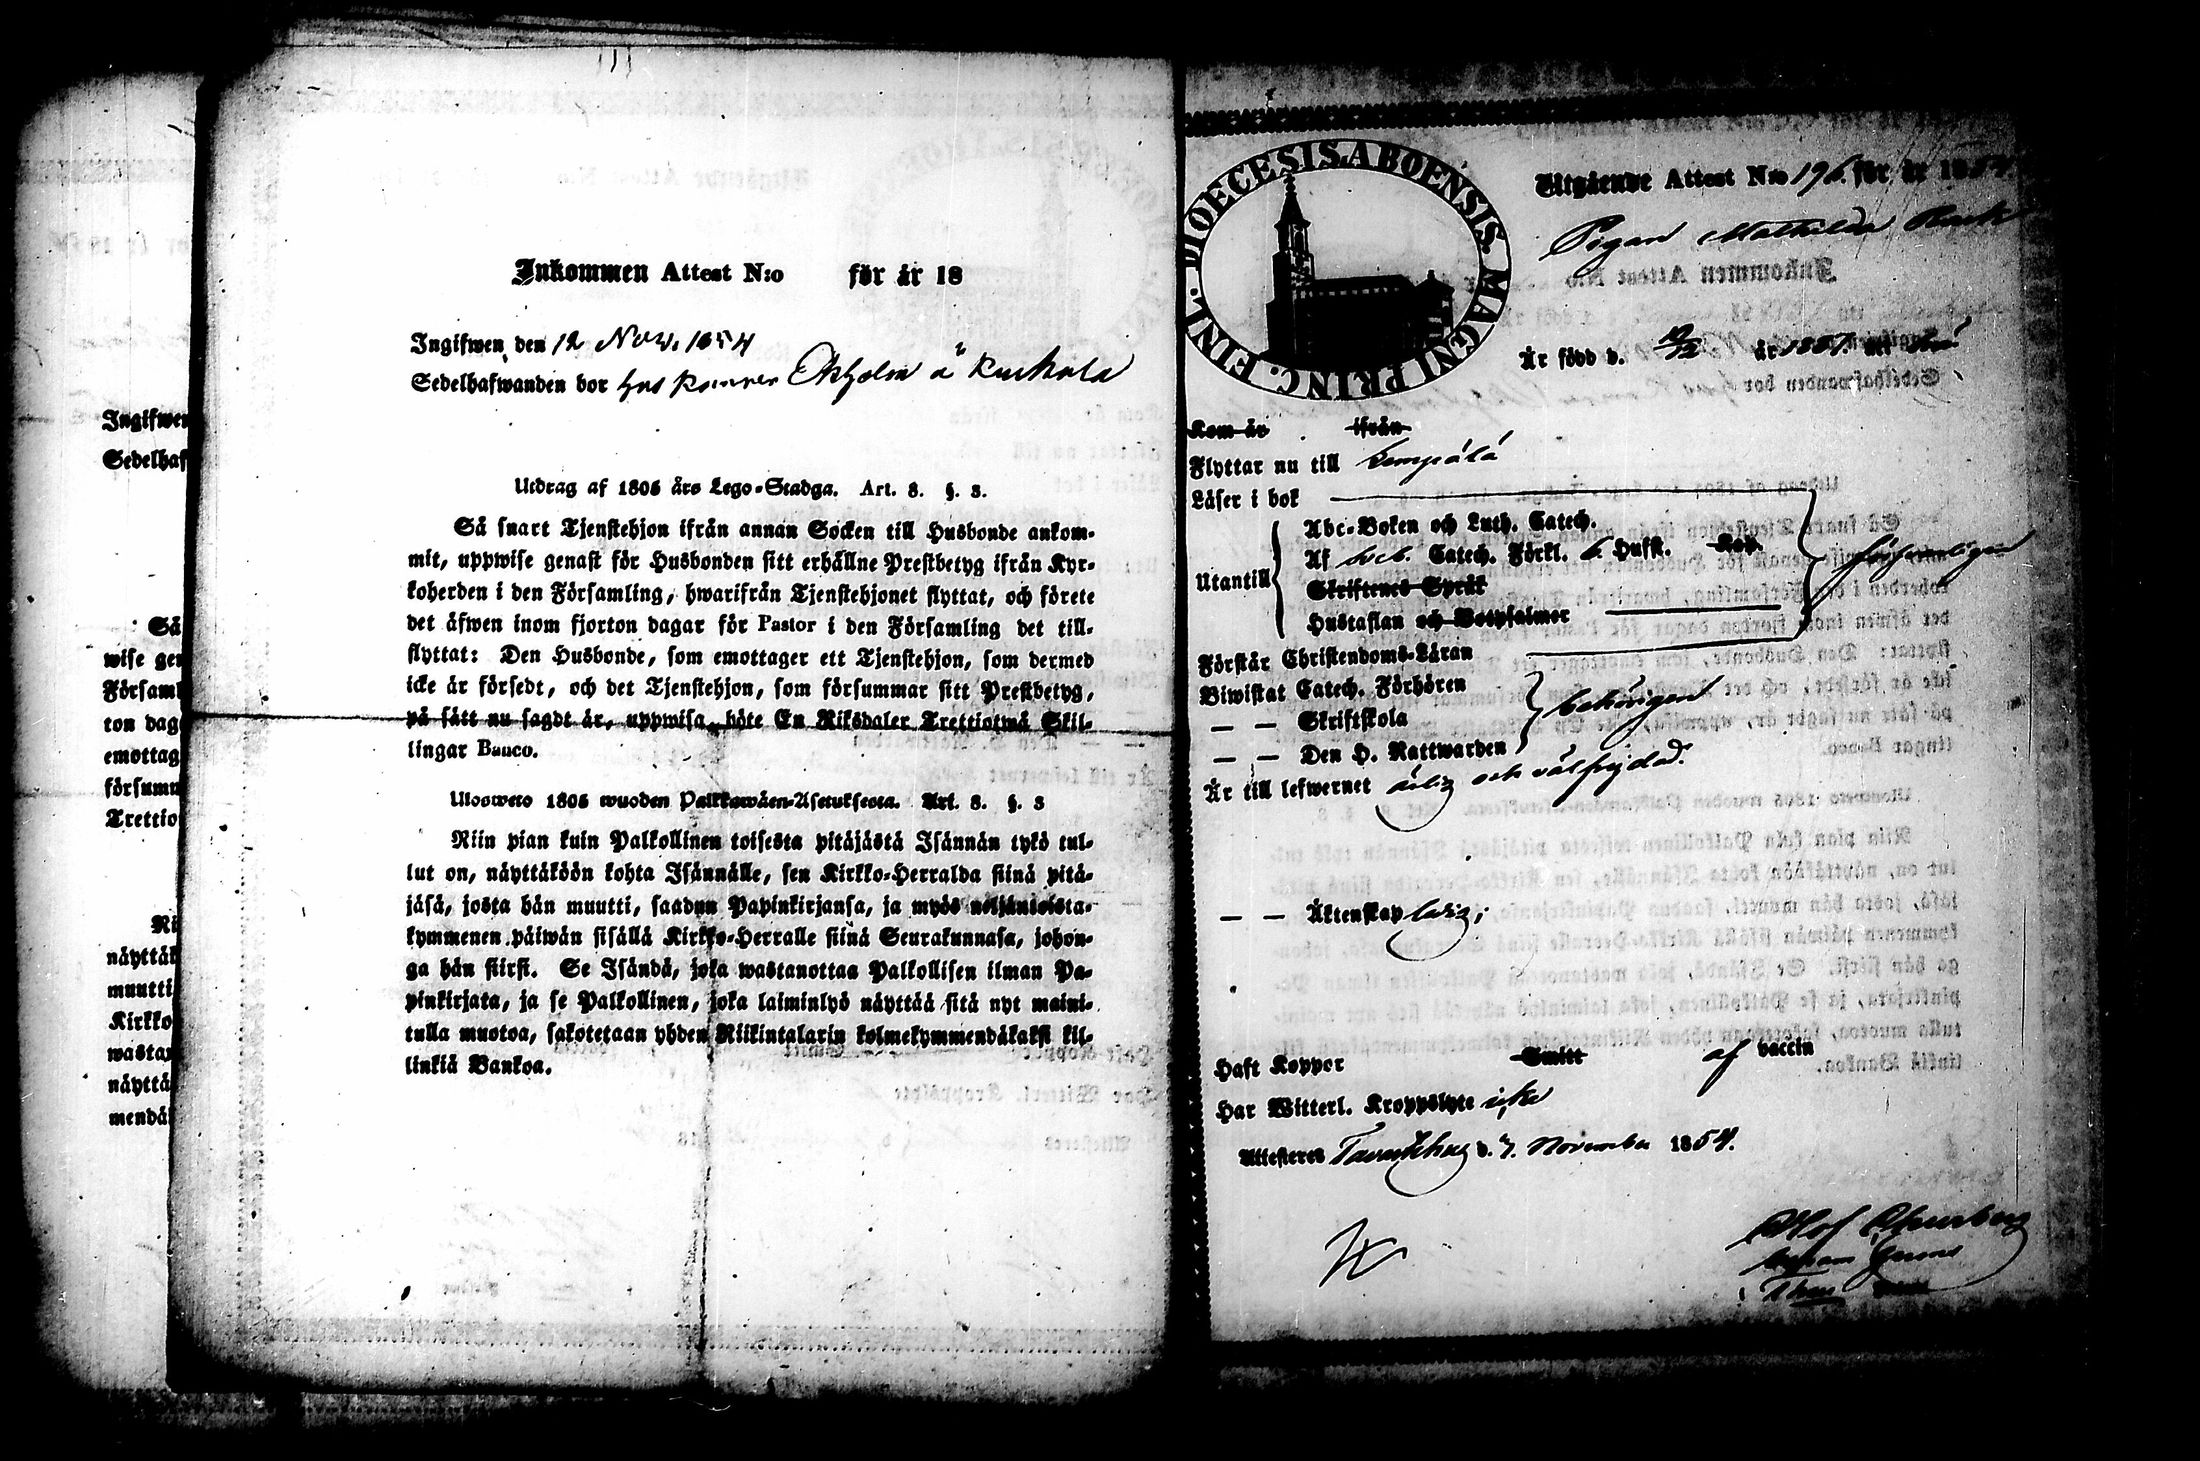 Ingifwen
Sedelhaf
Så
wise gen
Församl
ton dag
emottag
försumm
Trettio
näyttäk
muutti
Kirkko
wastan
näyttä
mendä
Inkommen Attest N:o för år 18
Ingifwen den 12 Nov. 1854
Sedelhafwanden bor hos
Utdrag af 1805 års Lego-Stadga. Art. 8. §. 3.
Så snart Tjenstehjon ifrån annan Socken till Husbonde ankom-
mit, uppwise genast för Husbonden sitt erhållne Prestbetyg ifrån Kyr-
koherden i den Församling, hwarifrån Tjenstehjonet flyttat, och förete
det äfwen inom fjorton dagar för Pastor i den Församling det till-
flyttat: Den Husbonde, som emottager ett Tjenstehjon, som dermed
icke är försedt, och det Tjenstehjon, som försummar sitt Prestbetyg,
på sätt nu sagdt är, uppwisa, böte En Riksdaler Trettiotwå Skil-
lingar Banco.
Ulosweto 1805 wuoden Palkkawäen-Asetuksesta. Art. 8. §. 3
Niin pian kuin Palkollinen toisesta pitäjästä Isännän tykö tul-
lut on, näyttäköön kohta Isännälle, sen Kirkko-Herralda siinä pitä-
jäsä, josta hän muutti, saadun Papinkirjansa, ja myös neljäntoista-
kymmenen päiwän sisällä Kirkko-Herralle siinä Seurakunnasa, johon-
ga hän siirsi. Se Isändä, joka wastanottaa Palkollisen ilman Pa-
pinkirjata, ja se Palkollinen, joka laiminlyö näyttää sitä nyt maini-
tulla muotoa, sakotetaan yhden Riikintalarin kolmekymmendäkaksi kil-
linkiä Bankoa.
FINL. DIOECESIS ABOENSIS. MAGNI PRINC.
Utgående Attest N:o 196. för år 1854
Pigan Mathilda
Är född d. år
Kom år ifrån
Flyttar nu till Lempälä
Läser i bok
Utantill
Abc-Boken och Luth. Catech.
Af Catech. Förkl. Husst. Kap.
Skriftenes Språk
Hustaflan och Botpsalmer
försvarligen
Förstår Christendoms-Läran
Biwistat Catech. Förhören
— — Skriftskola
— — Den H. Nattwarden
behörigen
Är till lefwernet ärlig och välfrejdad.
— — Äktenskap ledig;
Haft Koppor Smitt af vaccin
Har Witterl. Kroppslyte icke
Attesteres Tavastehus d. 7. November 1854.